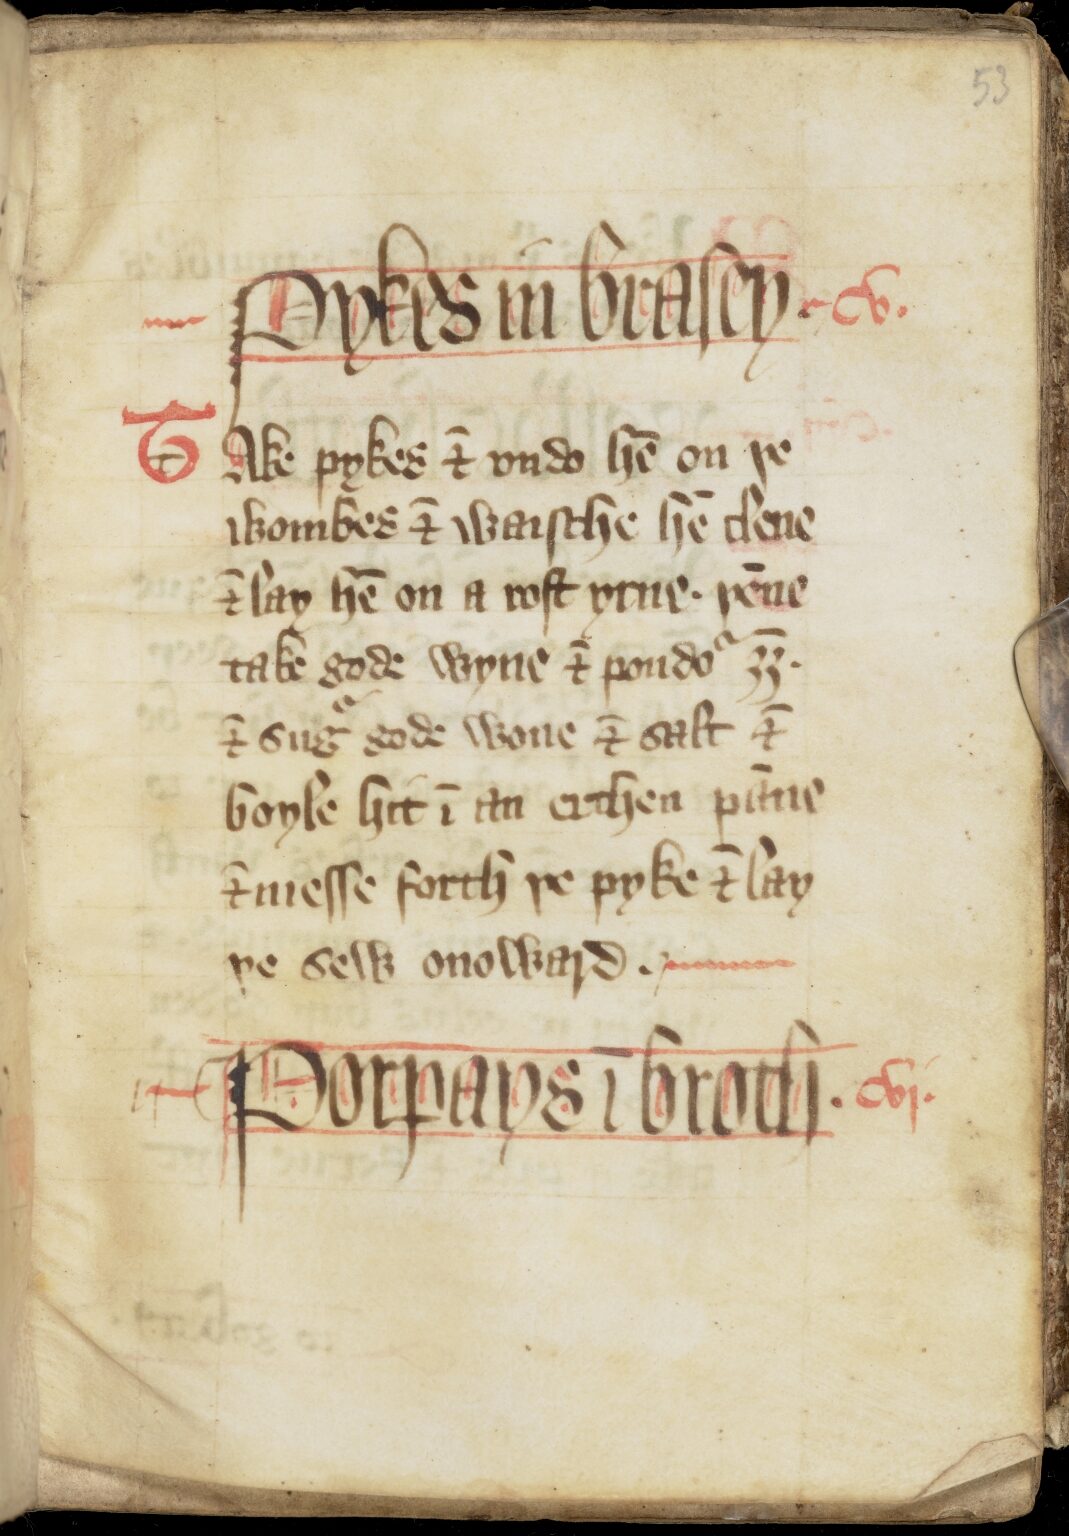 53
Pykes in brasey · cv.
Take pykes ⁊ vndo hē on þe
wombes ⁊ waische hē clene
⁊ lay hē on a rost yrne. þēne
take gode wyne ⁊ poudoʳ gīg.
⁊ sugᵃ gode wone ⁊ salt ⁊
boyle hit ī an erthen pāne
⁊ messe forth þe pyke ⁊ lay
þe sew onoward.
Porpays ī broth. cvj.